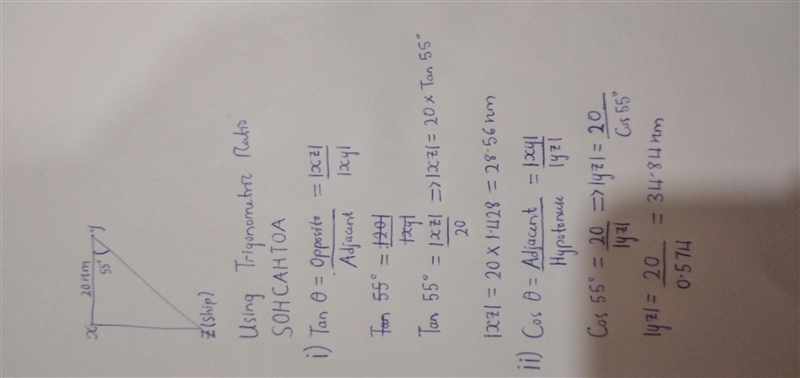 x 20nm y
55°
z(ship)
Using Trigonometric Ratio
SOHCAHTOA
i) Tan θ = Opposite / Adjacent = |xz| / |xy|
Tan 55° = |20| / |xy|
Tan 55° = |xz| / 20 => |xz| = 20 x Tan 55°
|xz| = 20 x 1.428 = 28.56nm
ii) Cos θ = Adjacent / Hypotenuse = |xy| / |yz|
Cos 55° = 20 / |yz| => |yz| = 20 / Cos 55°
|yz| = 20 / 0.574 = 34.84nm